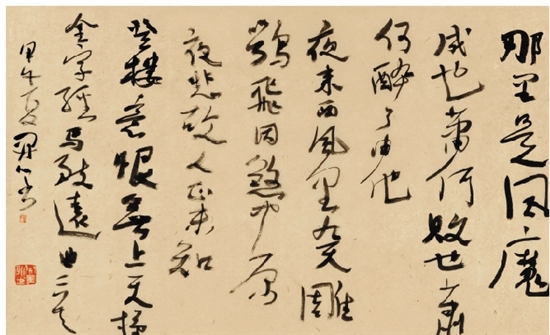 那里是风魔
成也萧何败也萧
何醉了由他
夜来西风里九天雕
鹗飞困煞中原
悲故人知未知
登楼意恨无上天梯
金字经马致远曲二首
甲午夏